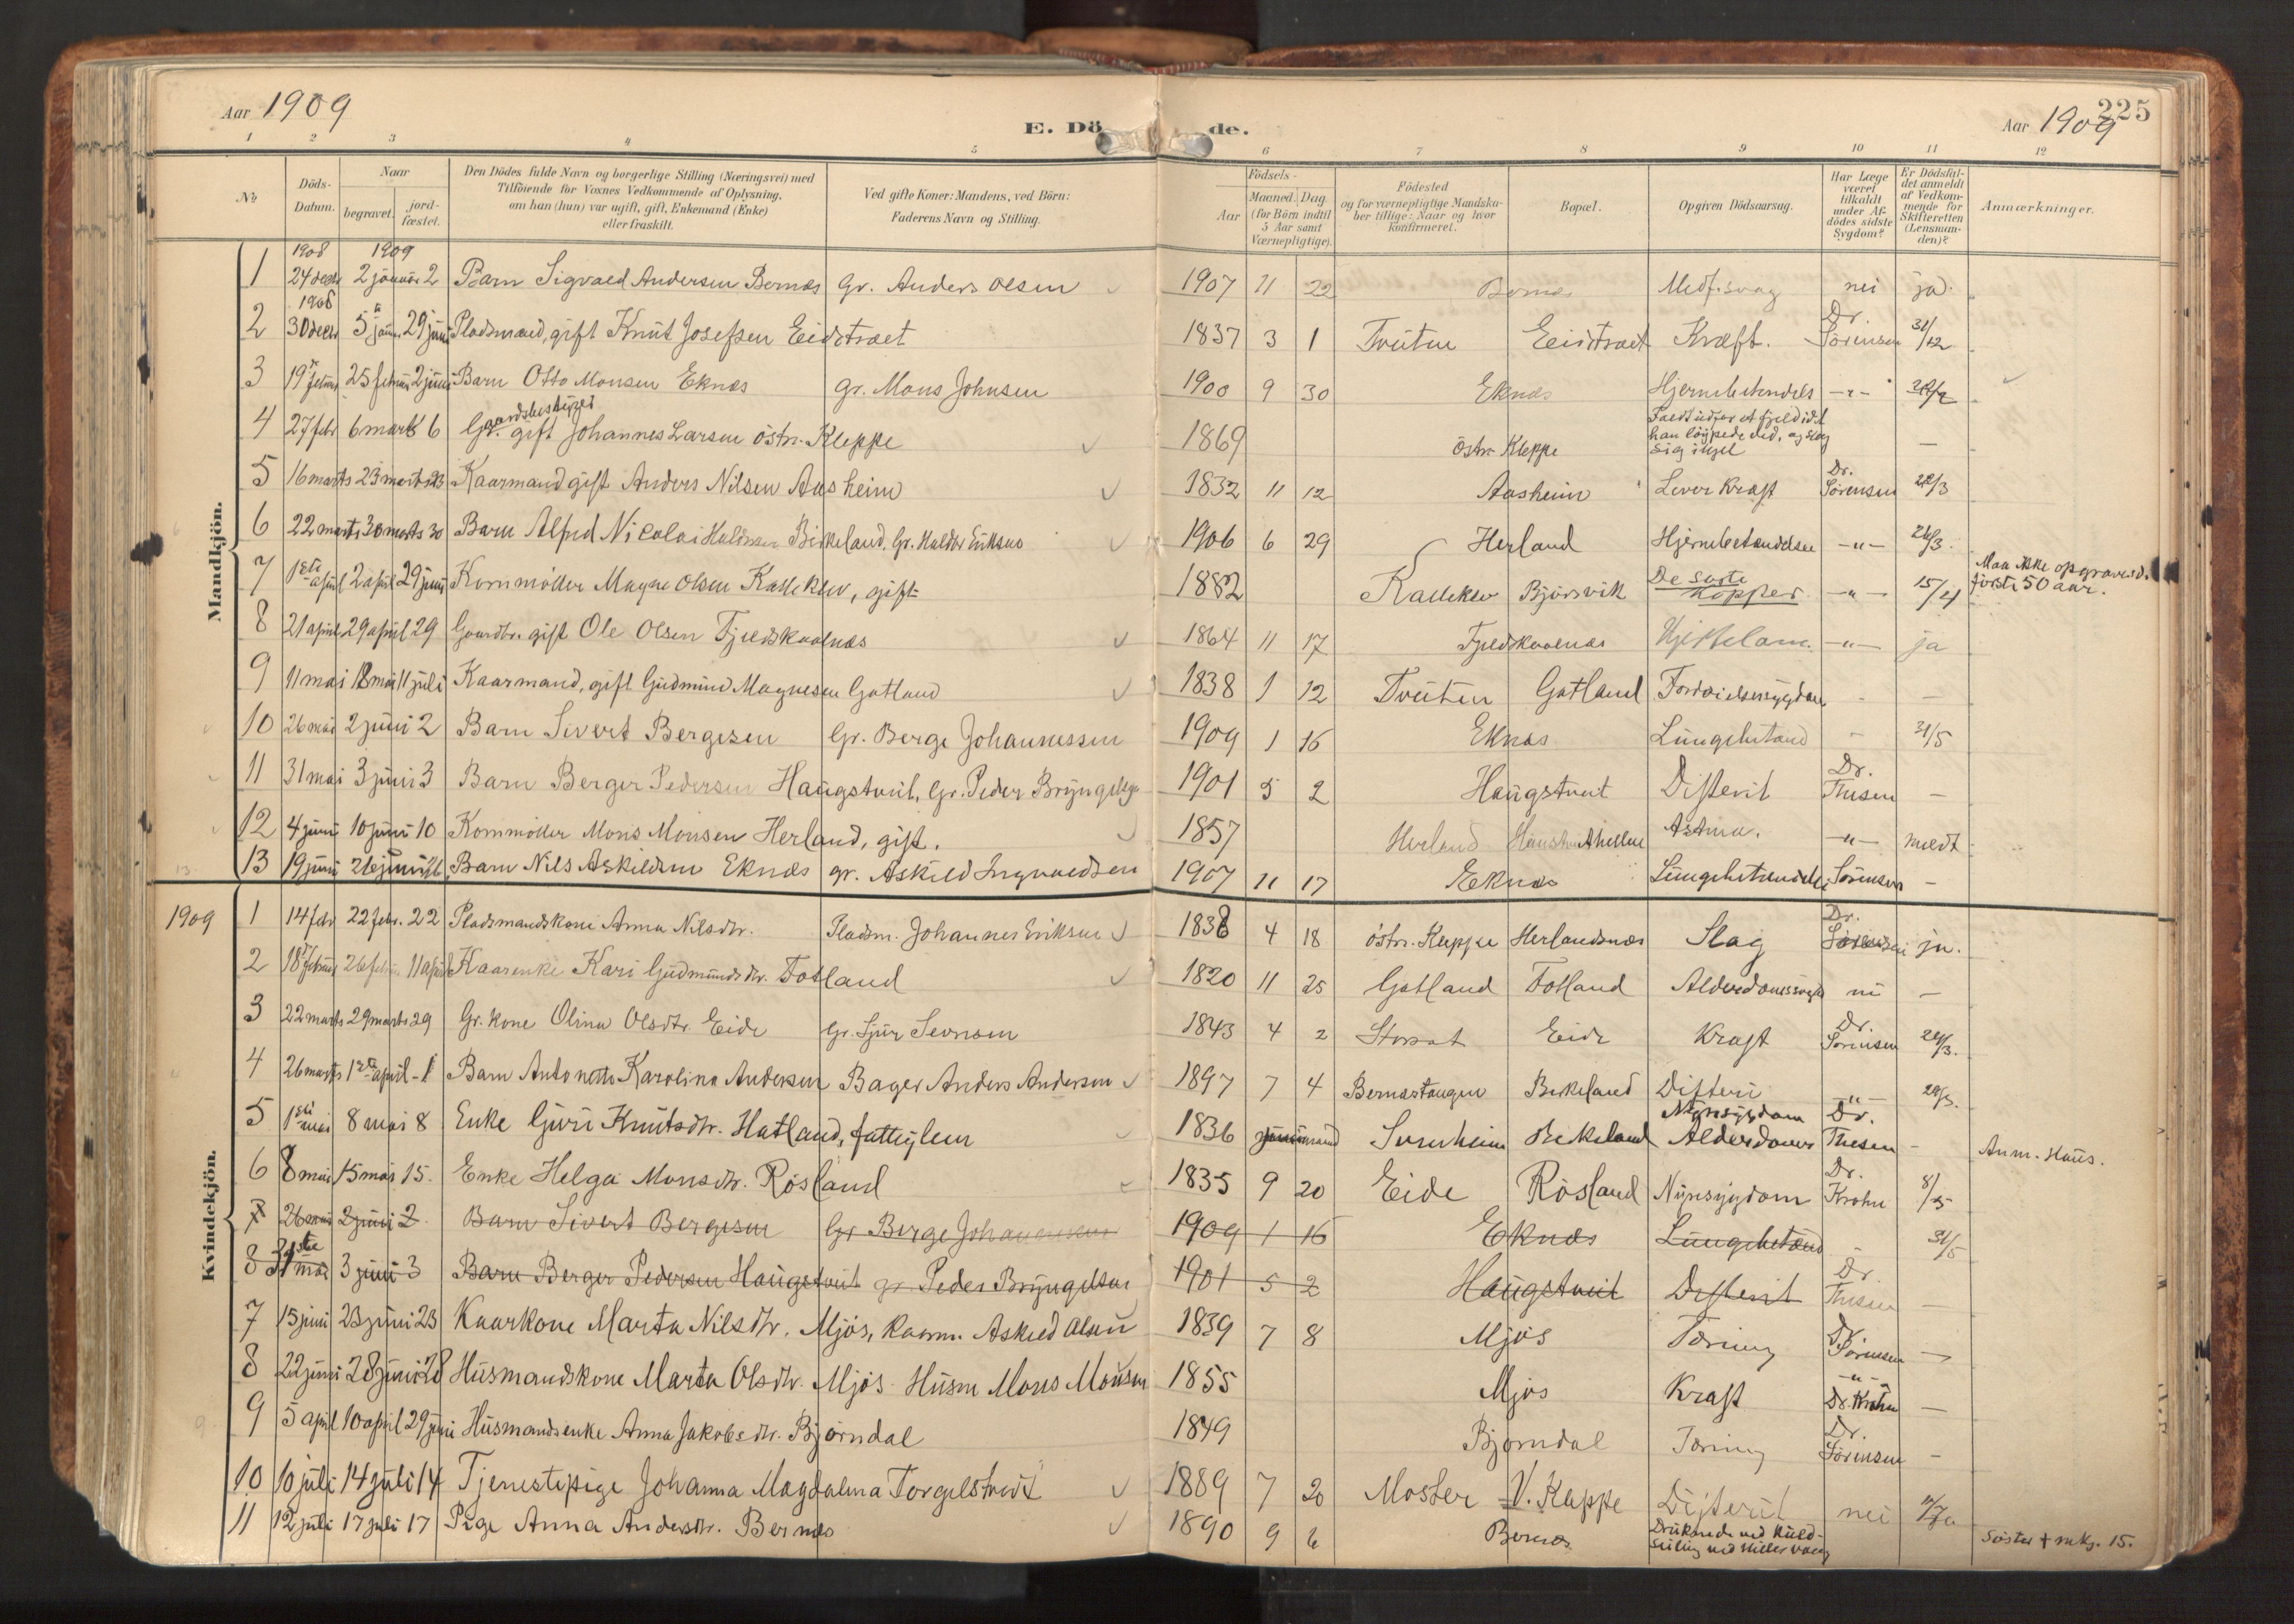 Aar 1909
E. Dö de.
Aar 1909
225
1 2 3 4 5 6 7 8 9 10 11 12
№
Döds-Datum.
Naar
begravet.
jord-fæstet.
Den Dödes fulde Navn og borgerlige Stilling (Næringsvei) med
Tilföiende for Voxnes Vedkommende af Oplysning,
om han (hun) var ugift, gift, Enkemand (Enke)
eller fraskilt.
Ved gifte Koner: Mandens, ved Börn:
Faderens Navn og Stilling.
Födsels-
Aar
Maaned.
Dag
(for Börn indtil
5 Aar samt
Værnepligtige).
Födested
og for værnepligtige Mandska-
ber tillige: Naar og hvor
konfirmeret.
Bopæl.
Opgiven Dödsaarsag.
Har Læge
været
tilkaldt
under Af-
dödes sidste
Sygdom?
Er Dödsfal-
det anmeldt
af Vedkom-
mende for
Skifteretten
(Lensman-
den)?
Anmærkninger.
Mandkjön.
1908 1909
1 24 decbr 2 januar 2 Barn Sigvald Andersen Bernes Gr. Anders Olsen 1907 11 22 Bernes Medf. svag nei ja.
1908
2 30 decbr 5 jan. 29 juni Pladsmand, gift Knut Josefsen Eidstræt 1837 3 1 Tveiten Eidstræt Kræft. Dr. Sörensen 31/12
3 19 februar 25 februar 2 juni Barn Otto Monsen Eknæs gr. Mons Johnsen 1900 9 30 Eknæs Hjernebetændels -"-
4 27 febr 6 marts 6 Gaardsbestyrer gift Johannes Larsen östre Kleppe 1869 östre Kleppe Faldt udfor et fjeld idet han löypede ved, og slog sig ihjel —
5 16 marts 23 marts 23 Kaarmand gift Anders Nilsen Aasheim 1832 11 12 Aasheim Lever Kræft Dr. Sörensen 22/3
6 22 marts 30 marts 30 Barn Alfred Nicolai Haldorsen Birkeland, Gr. Haldor Eriksen 1906 6 29 Herland Hjernebetændelse -"- 26/3.
7 1ste april 2 april 29 juni Kornmöller Magne Olsen Kalleklev, gift 1882 Kalleklev Björsvik De sorte Kopper -"- 15/4 Maa ikke opgraves d. förste 50 aar.
8 21 april 29 april 29 Gaardbr. gift Ole Olsen Fjeldskaalnæs 1864 11 17 Fjeldskaalnæs Hjertelam. -"- ja
9 11 mai 18 mai 11 juli Kaarmand, gift Gudmund Magnesen Gotland 1838 1 12 Tveiten Gotland Fordöielsessygdom - —
10 26 mai 2 juni 2 Barn Sivert Bergesen Gr. Berge Johannessen 1909 1 16 Eknæs Lungebetænd - 31/5
11 31 mai 3 juni 3 Barn Berger Pedersen Haugstveit, Gr. Peder Bryngels 1901 5 2 Haugstveit Difterit Dr. Thesen —
12 4 juni 10 juni 10 Kornmöller Mons Monsen Herland, gift. 1857 Herland Astma. -"- meldt
13 19 juni 26 juni 26 Barn Nils Askildsen Eknæs gr. Askild Ingvaldsen 1907 11 17 Eknæs Lungebetændelse Sörensen —
Kvindekjön.
1909 1 14 febr 22 febr. 22 Pladsmandskone Anna Nilsdtr. Pladsm. Johannes Eriksen 1838 4 18 östre Kleppe Herlandsnæs Slag Dr. Sörensen ja.
2 18 februar 26 febr. 11 april Kaarenke Kari Gudmundsdtr. Fotland 1820 11 25 Gotland Fotland Alderdomssvagh nei —
3 22 marts 29 marts 29 Gr. kone Olina Olsdtr. Eide Gr. Sjur Sevrnsen 1843 4 2 Eide Kræft Dr. Sörensen 24/3.
4 26 marts 1ste april 1 Barn Antonette Karolina Andersen Bager Anders Andersen 1897 7 4 Bernestangen Birkeland Difteri -"- 29/3.
5 1ste mai 8 mai 8 Enke Guri Knutsdtr. Hatland, fattiglem 1836 Birkeland Nyresygdom Alderdoms Dr. Thesen - Anm. Haus.
6 8 mai 15 mai 15. Enke Helga Monsdtr. Rösland 1835 9 20 Eide Rösland Nyresygdom Dr. Krohn 8/5
7 26 mai 2 juni 2. Barn Sivert Bergesen Gr Berge Johannessen 1909 1 16 Eknæs Lungebetænd - 31/5
8 31ste mai 3 juni 3 Barn Berger Pedersen Haugstveit gr Peder Bryngelsen 1901 5 2 Haugstveit Difterit Dr. Thesen —
7 15 juni 23 juni 23 Kaarkone Marta Nilsdtr. Mjös, Kaarm. Askild Olsen 1839 7 8 Mjös Tæring Dr. Sörensen —
8 22 juni 28 juni 28 Husmandskone Marta Olsdtr. Mjös Husm Mons Monsen 1855 Mjös Kræft -"- Dr. Krohn —
9 5 april 10 april 29 juni Husmandsenke Anna Jakobsdtr. Björndal 1849 Björndal Tæring Dr. Sörensen -
10 10 juli 14 juli 14 Tjenestepige Johanna Magdalena Torgelstveit 1889 7 20 Moster V. Kleppe Difterit nei
11 12 juli 17 juli 17 Pige Anna Andersdtr. Bernes 1890 9 6 Bernes Druknede ved kuldseiling Söster + mkj. 15.